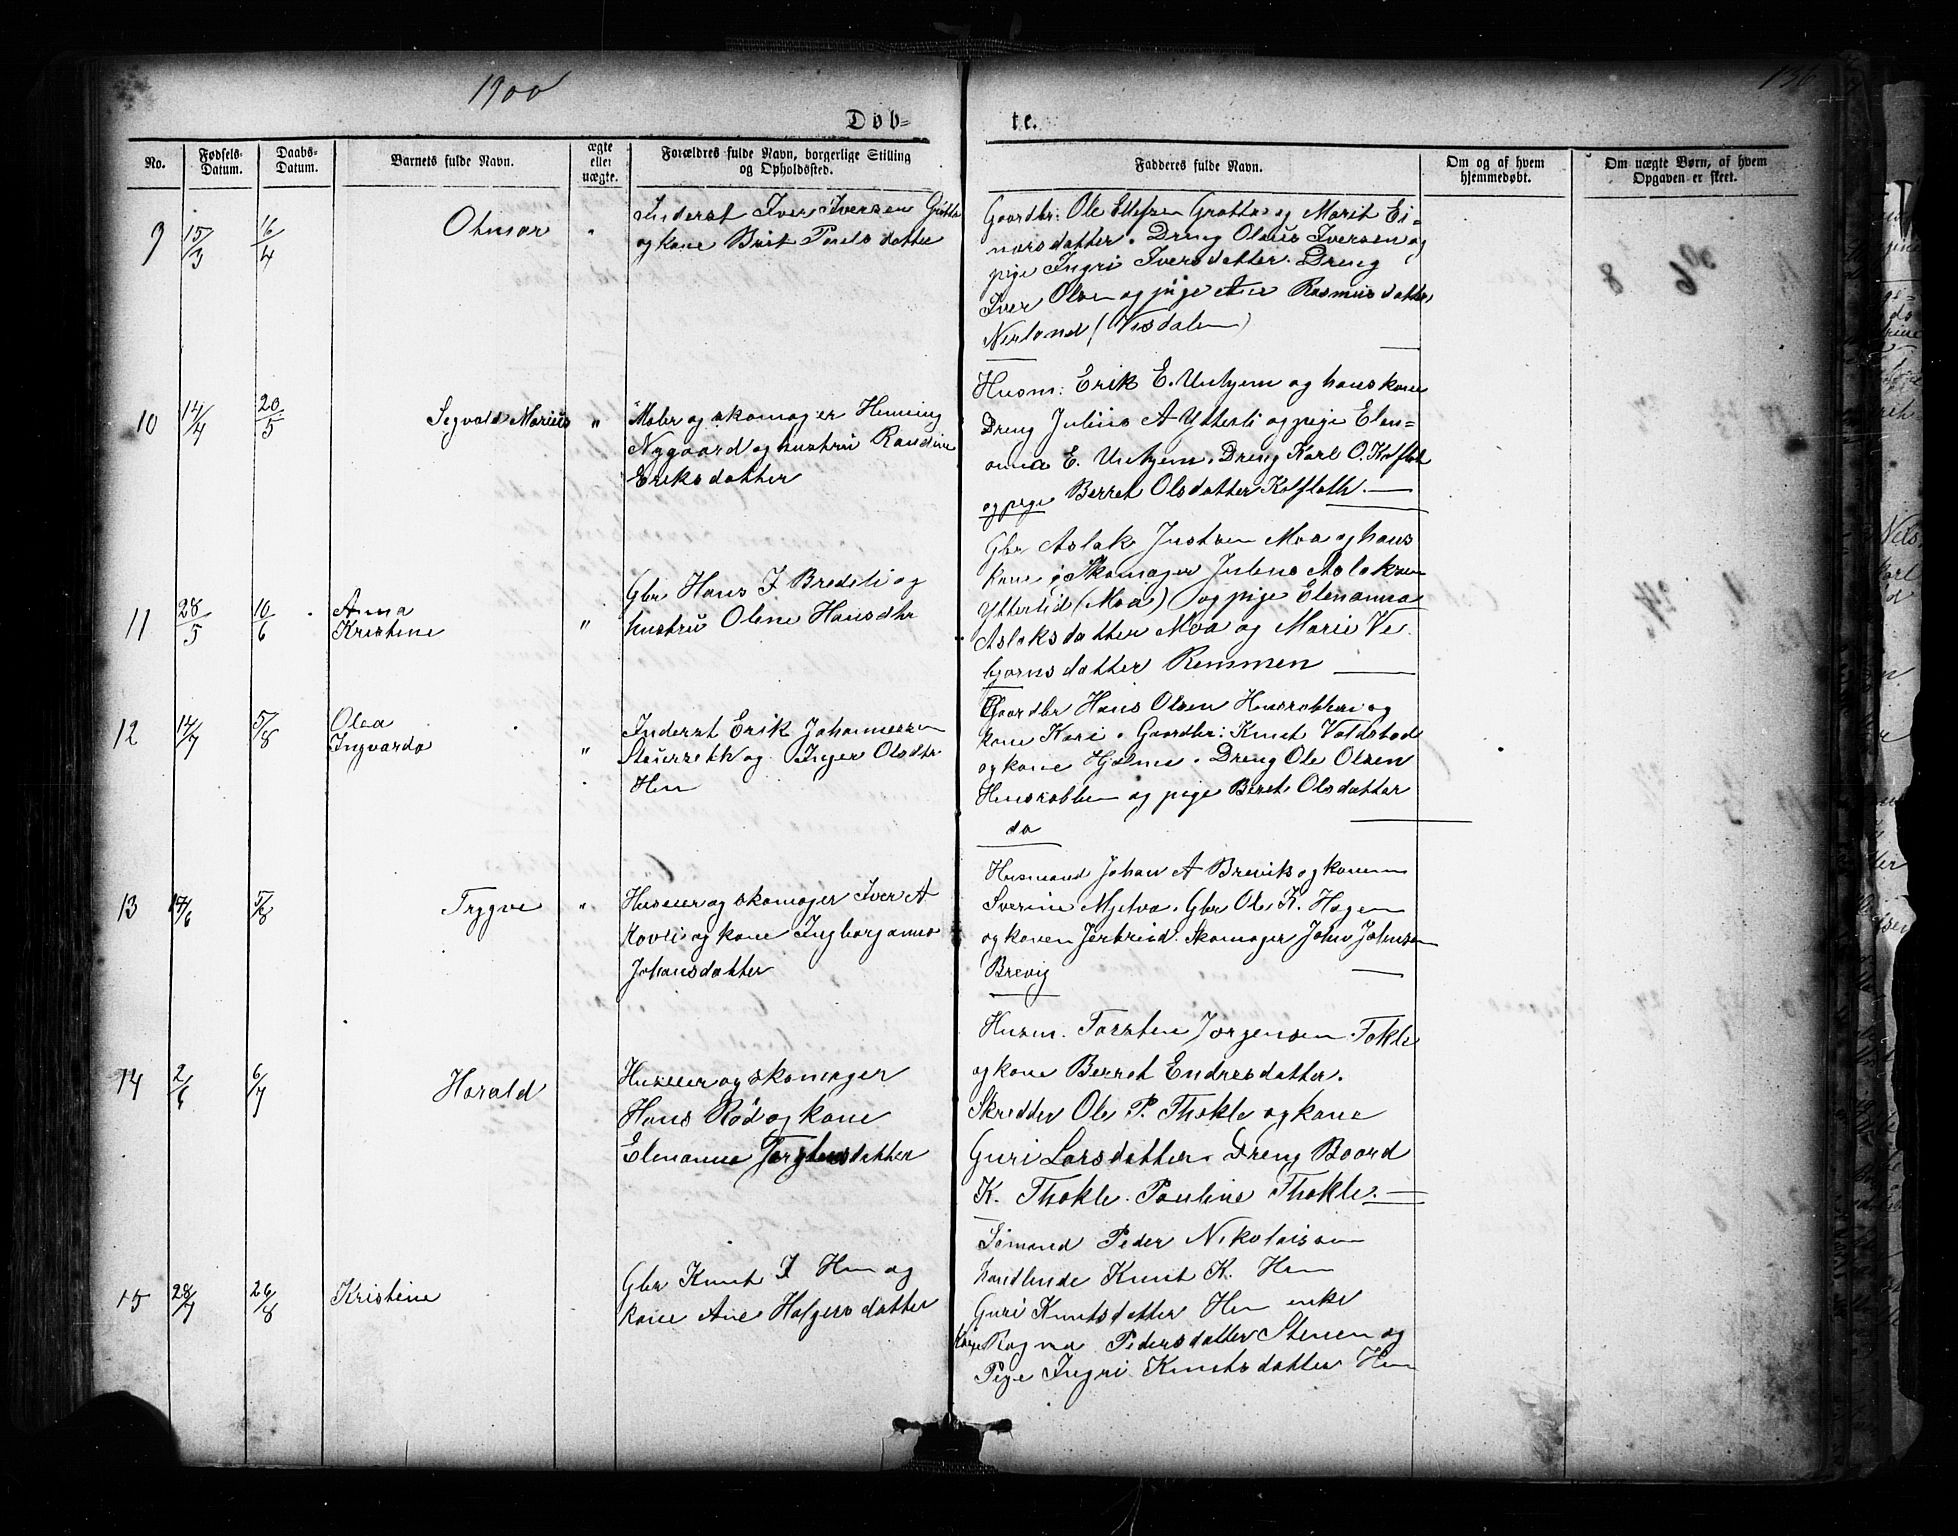 1900
136
Døbte.
No.
Fødsels-Datum.
Daabs-Datum.
Barnets fulde Navn.
ægte eller uægte.
Forældres fulde Navn, borgerlige Stilling og Opholdssted.
Fadderes fulde Navn.
Om og af hvem hjemmedøbt.
Om uægte Børn, af hvem Opgaven er skeet.
9 15/3 16/4 Otmar "
Inderst Iver Iversen Grøtta
og kone Brit Paulsdatter
Gaardbr: Ole Ellefsen Grøtta og Marit Ei-
narsdatter. Dreng Olaus Iversen og
pige Ingri Iversdatter. Dreng
Iver Olsen og pige Ane Rasmusdatter
Nerland (Visdalen)
10 14/4 20/5 Segvald Marius "
Maler og skomager Henning
Nygaard og hustru Randine
Eriksdatter
Husm: Erik E. Unhjem og hans kone
Dreng Julius A Ytterli og pige Elen-
anna E. Unhjem. Dreng Karl O. Kolflath
og pige Berret Olsdatter Kolflath.
11 28/5 10/6 Anna
Kristine "
Gbr Hans J Bredeli og
hustru Oline Hansdtr
Gbr Aslak Justsen Moa og hans
kone, Skomager Julius Aslaksen
Ytterlid (Moa) og pige Elenanna
Aslaksdatter Moa og Marie Ve-
bjørnsdatter Remmen
12 14/7 5/8 Olea
Ingvarda "
Inderst Erik Johannessen
og Inger Olsdtr
Hen
Gaardbr Hans Olsen Hensrabben og
kone Kari. Gaardbr: Knut Voldstad
og kone Hjelma. Dreng Ole Olsen
Hensrabben og pige Beret Olsdatter
do
13 14/6 5/8 Trygve "
Huseier og skomager Iver A
Kovli og kone Ingborganna
Johansdatter
Husmand Johan A Brevik og konen
Sverine Mjelva. Gbr Ole K. Hagen
og konen Jertrud. Skomager John Johnsen
Brevig
14 2/6 6/7 Harald
Huseier og skomager
Hans Rød og kone
Elenanna Torstensdatter
Husm. Torsten Jørgensen Tokle
og kone Berret Endresdatter.
Skredder Ole P. Thokle og kone
Guri Larsdatter. Dreng Baard
K. Thokle. Pauline Thokle.
15 28/7 26/8 Kristine
Gbr Knut J Hen og
kone Ane Holgersdatter
Sømand Peder Nikolaisen
handlende Knut K. Hen
Guri Knutsdatter Hen enke
Kone Ragna Pedersdatter Stenen og
Pige Ingri Knutsdatter Hen